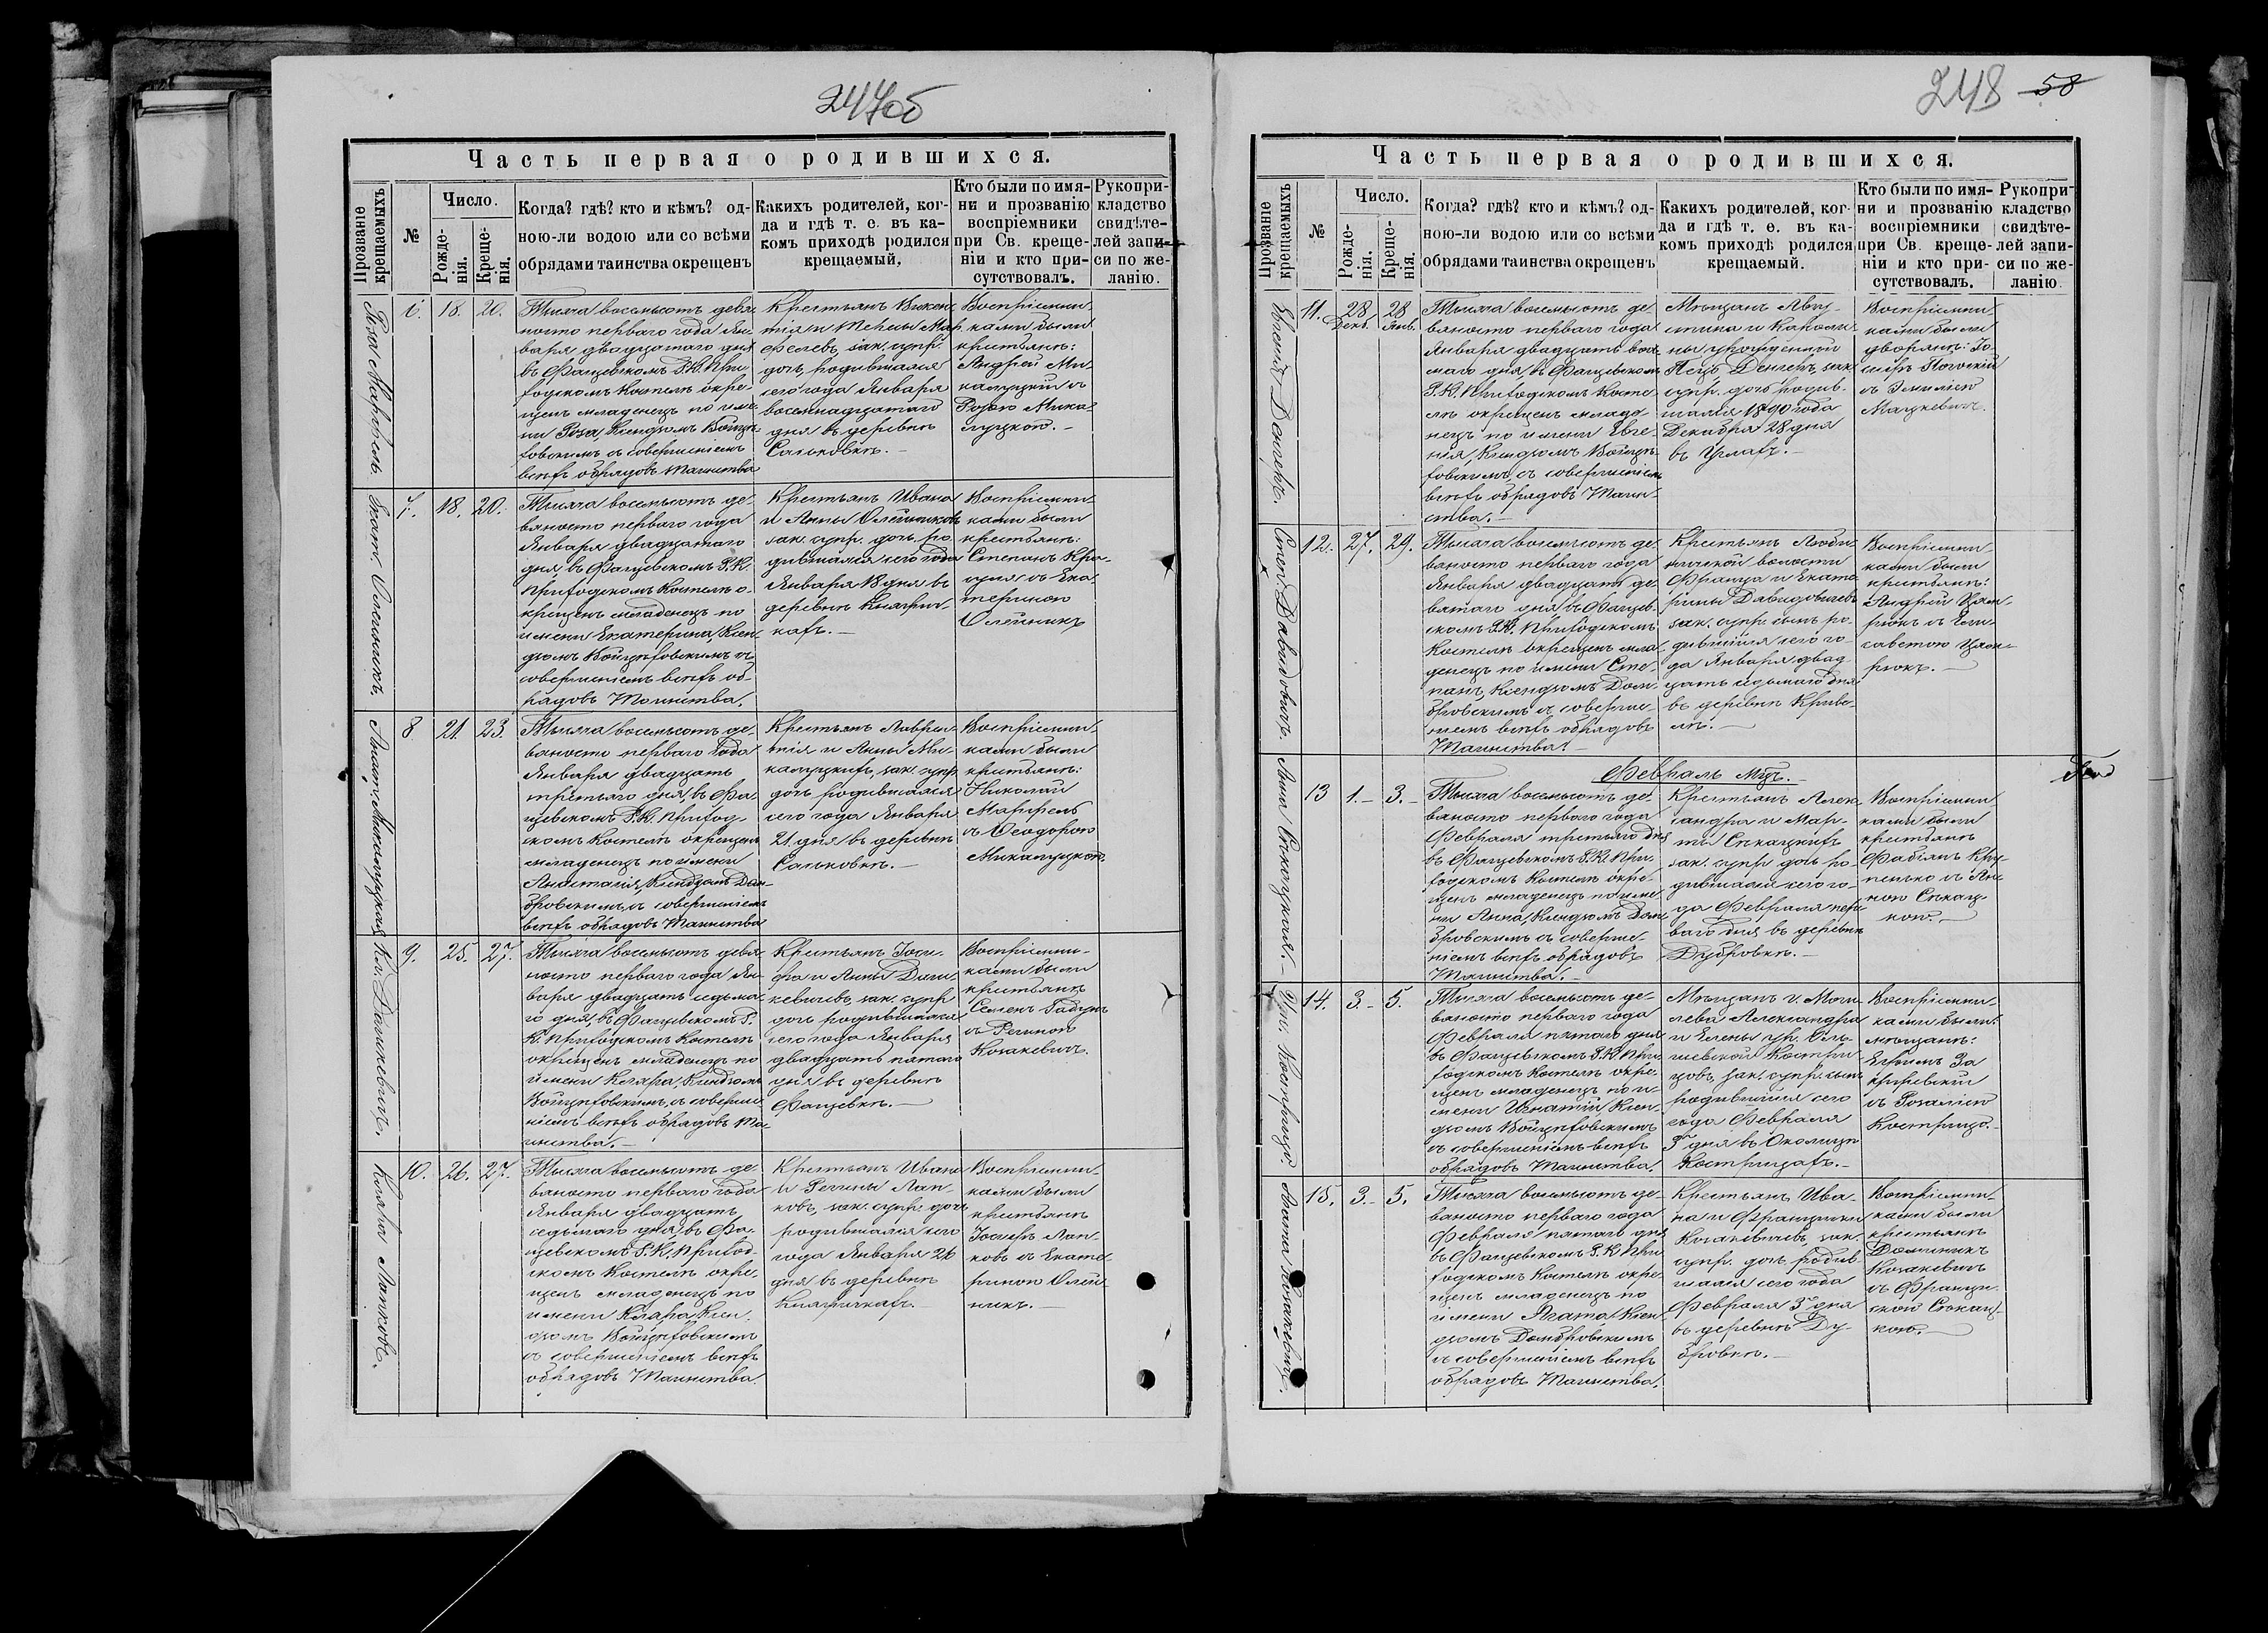 247об
Часть первая о родившихся.
Прозваніе крещаемыхъ
№
Число.
Рожде-
нія.
Креще-
нія.
Когда? гдѣ? кто и кѣмъ? од-
ною-ли водою или со всѣми
обрядами таинства окрещенъ
Какихъ родителей, ког-
да и гдѣ т. е. въ ка-
комъ приходѣ родился
крещаемый.
Кто были по имя-
ни и прозванію
воспріемники
при Св. креще-
ніи и кто при-
сутствовалъ.
Рукопри-
кладство
свидѣте-
лей запи-
си по же-
ланію.
6. 18. 20.
Тысяча восемьсотъ девя-
носто перваго года Ян-
варя двадцатаго дня
въ Фащевскомъ Р.К. При-
ходскомъ Костелѣ окре-
щенъ младенецъ по име-
ни Роза, Ксендзомъ Войцѣ-
ховскимъ съ совершеніемъ
всѣхъ обрядовъ Таинства
Крестьянъ
зак. супр.
дочь, родившаяся
сего года Января
восемнадцатаго
дня въ деревнѣ
Сальковкѣ.
Воспріемни-
ками были
крестьяне:
Андрей Ми-
калуцкій съ
Розою Мика-
луцкою.
Екат. Олейникъ
7. 18. 20.
Тысяча восемьсотъ де-
вяносто перваго года
Января двадцатаго
дня въ Фащевскомъ Р.К.
Приходскомъ Костелѣ о-
крещенъ младенецъ по
имени Екатерина, Ксен-
дзомъ Войцѣховскимъ съ
совершеніемъ всѣхъ об-
рядовъ Таинства.
Крестьянъ Ивана
и Анны Олейниковъ
зак. супр. дочь, ро-
дившаяся сего года
Января 18 дня въ
деревнѣ Княжич-
кахъ.
Воспріемни-
ками были
крестьяне:
Степанъ
съ Ека-
териною
Олейникъ
Анаст. Микалуцкая
8 21. 23.
Тысяча восемьсотъ де-
вяносто перваго года
Января двадцать
третьяго дня, въ Фа-
щевскомъ Р.К. Приход-
скомъ Костелѣ окрещенъ
младенецъ по имени
Анастасія, Ксендзомъ Дом-
бровскимъ, съ совершеніемъ
всѣхъ обрядовъ Таинства
Крестьянъ Лаврен-
тія и Анны Ми-
калуцкихъ, зак. супр.
дочь родившаяся
сего года Января
21 дня въ деревнѣ
Сальковкѣ.
Воспріемни-
ками были
крестьяне:
Николай
съ Ѳеодорою
Микалуцкою.
9. 25. 27.
Тысяча восемьсотъ девя-
носто перваго года Ян-
варя двадцать седьма-
го дня, въ Фащевскомъ Р.
К. Приходскомъ Костелѣ
окрещенъ младенецъ по
имени Клара, Ксендзомъ
Войцѣховскимъ, съ соверше-
ніемъ всѣхъ обрядовъ Та-
инства.
Крестьянъ Іоси-
фа и Анны
зак. супр.
дочь родившаяся
сего года Января
двадцать пятаго
дня въ деревнѣ
Фащевкѣ.
Воспріемни-
ками были
крестьяне
съ
Козакевичъ.
10. 26. 27.
Тысяча восемьсотъ де-
вяносто перваго года
Января двадцать
седьмаго дня, въ Фа-
щевскомъ Р.К. Приход-
скомъ Костелѣ окре-
щенъ младенецъ по
имени Клара, Ксен-
дзомъ Войцѣховскимъ
съ совершеніемъ всѣхъ
обрядовъ Таинства.
Крестьянъ Ивана
и Регины Лап-
ковъ, зак. супр. дочь
родившаяся сего
года Января 26
дня въ деревнѣ
Княжичкахъ.
Воспріемни-
ками были
крестьяне
Іосифъ Лап-
ковъ съ Екате-
риною Олей-
никъ.
248 58
Часть первая о родившихся.
Прозваніе крещаемыхъ
№
Число.
Рожде-
нія.
Креще-
нія.
Когда? гдѣ? кто и кѣмъ? од-
ною-ли водою или со всѣми
обрядами таинства окрещенъ
Какихъ родителей, ког-
да и гдѣ т. е. въ ка-
комъ приходѣ родился
крещаемый.
Кто были по имя-
ни и прозванію
воспріемники
при Св. креще-
ніи и кто при-
сутствовалъ.
Рукопри-
кладство
свидѣте-
лей запи-
си по же-
ланію.
11. 28 Дек. 28 Янв.
Тысяча восемьсотъ де-
вяносто перваго года
Января двадцать вось-
маго дня, въ Фащевскомъ
Р.К. Приходскомъ Косте-
лѣ окрещенъ младе-
нецъ по имени Евге-
нія, Ксендзомъ Войцѣ-
ховскимъ, съ совершеніемъ
всѣхъ обрядовъ Таин-
ства.
Мѣщанъ Авгу-
стина и Кароли-
ны урожденной
зак.
супр. дочь родив-
шаяся 1890 года
Декабря 28 дня
въ
Воспріемни-
ками были
дворяне: Іо-
сифъ
съ Эмиліею
Мацкевичъ.
Степ. Давидовичъ
12. 27. 29.
Тысяча восемьсотъ де-
вяносто перваго года
Января двадцать де-
вятаго дня въ Фащев-
скомъ Р.К. Приходскомъ
Костелѣ окрещенъ мла-
денецъ по имени Сте-
панъ, Ксендзомъ Дом-
бровскимъ съ соверше-
ніемъ всѣхъ обрядовъ
Таинства.
Крестьянъ
волости
Франца и Екате-
рины Давидовичевъ
зак. супр. сынъ ро-
дившійся сего го-
да Января двад-
цать седьмаго дня
въ деревнѣ
Воспріемни-
ками были
крестьяне:
Андрей
съ Ели-
саветою
Февраль мцъ.
13 1. 3.
Тысяча восемьсотъ де-
вяносто перваго года
Февраля третьяго дня
въ Фащевскомъ Р.К. При-
ходскомъ Костелѣ окре-
щенъ младенецъ по име-
ни Анна, Ксендзомъ Дом-
бровскимъ съ соверше-
ніемъ всѣхъ обрядовъ
Таинства.
Крестьянъ Алек-
сандра и Мар-
зак. супр. дочь ро-
дившаяся сего го-
да Февраля пер-
ваго дня въ деревнѣ
Дубровкѣ.
Воспріемни-
ками были
крестьяне
съ Ан-
ною
14. 3. 5.
Тысяча восемьсотъ де-
вяносто перваго года
Февраля пятаго дня
въ Фащевскомъ Р.К. При-
ходскомъ Костелѣ окре-
щенъ младенецъ по и-
мени Игнатій, Ксен-
дзомъ Войцѣховскимъ
съ совершеніемъ всѣхъ
обрядовъ Таинства.
Мѣщанъ г. Моги-
лева Александра
и Елены
Костри-
цовъ, зак. супр. сынъ
родившійся сего
года Февраля
3 дня въ Околицѣ
Кострицахъ.
Воспріемни-
ками были:
мѣщане:
съ Розаліею
Кострицо.
Агата Козакевичъ
15. 3. 5.
Тысяча восемьсотъ де-
вяносто перваго года
Февраля пятаго дня
въ Фащевскомъ Р.К. При-
ходскомъ Костелѣ окре-
щенъ младенецъ по
имени Агата, Ксен-
дзомъ Домбровскимъ
съ совершеніемъ всѣхъ
обрядовъ Таинства.
Крестьянъ Ива-
на и Францишки
Козакевичевъ, зак.
супр. дочь, родив-
шаяся сего года
Февраля 3 дня
въ деревнѣ Ду-
бровкѣ.
Воспріемни-
ками были
крестьяне
Доминикъ
Козакевичъ
съ Францишкой